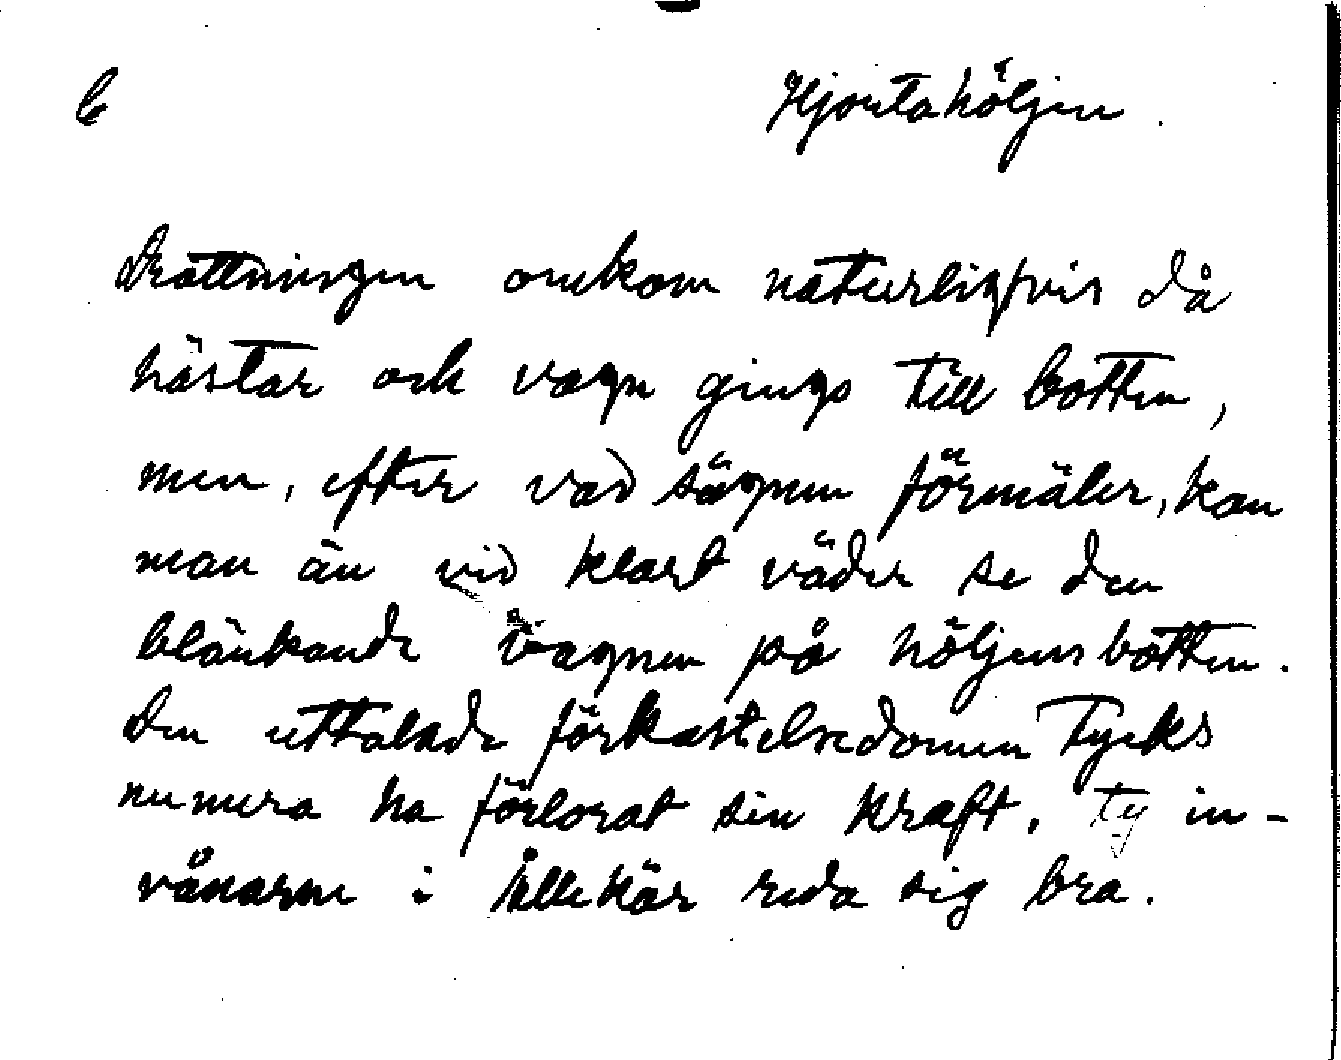 b
Hjortahöljen.
Drottningen omkom naturligtvis då
hästar och vagn gingo till botten,
men, efter vad sägnen förmäler, kan
man än vid klart väder se den
blänkande vagnen på höljens botten.
Den uttalade förkastelsedomen tycks
numera ha förlorat sin kraft, ty in-
vånarne i Ållekär reda sig bra.